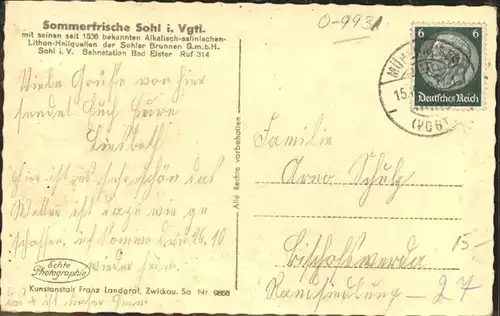 Sommerfrische Sohl i. Vgtl.
mit seinen seit 1536 bekannten Alkalisch-salinischen-
Lithon-Heilquellen der Sohler Brunnen G.m.b.H.
Sohl i. V. Bahnstation Bad Elster Ruf 314
O-9931
6 6
Deutsches Reich
(VOGT
15.
Viele Grüße von hier
sendet Euch Eure
Liesbeth
Hier ist es sehr schön das
Wetter ist
ich komme 26.10
wieder heim.
Echte
Photographie
Kunstanstalt Franz Landgraf, Zwickau. Sa Nr. 9868
ist unser
Alle Rechte vorbehalten
Familie
Arno Schulz
Bischofswerda
Ramsiedlung - 27
15-